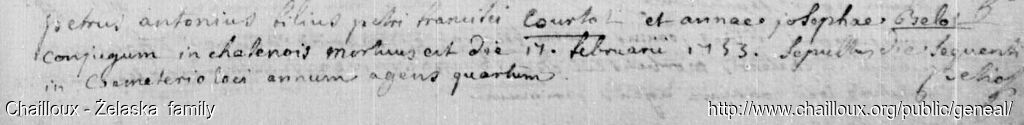 petrus antonius filius petri francisci Courtot et annae josephae Belot
conjugum in chatenois mortuus est die 17. februarii 1753. Sepultus die sequenti
in Coemeterio loci annum agens quartum.
Chailloux - Želaska family
http://www.chailloux.org/public/geneal/